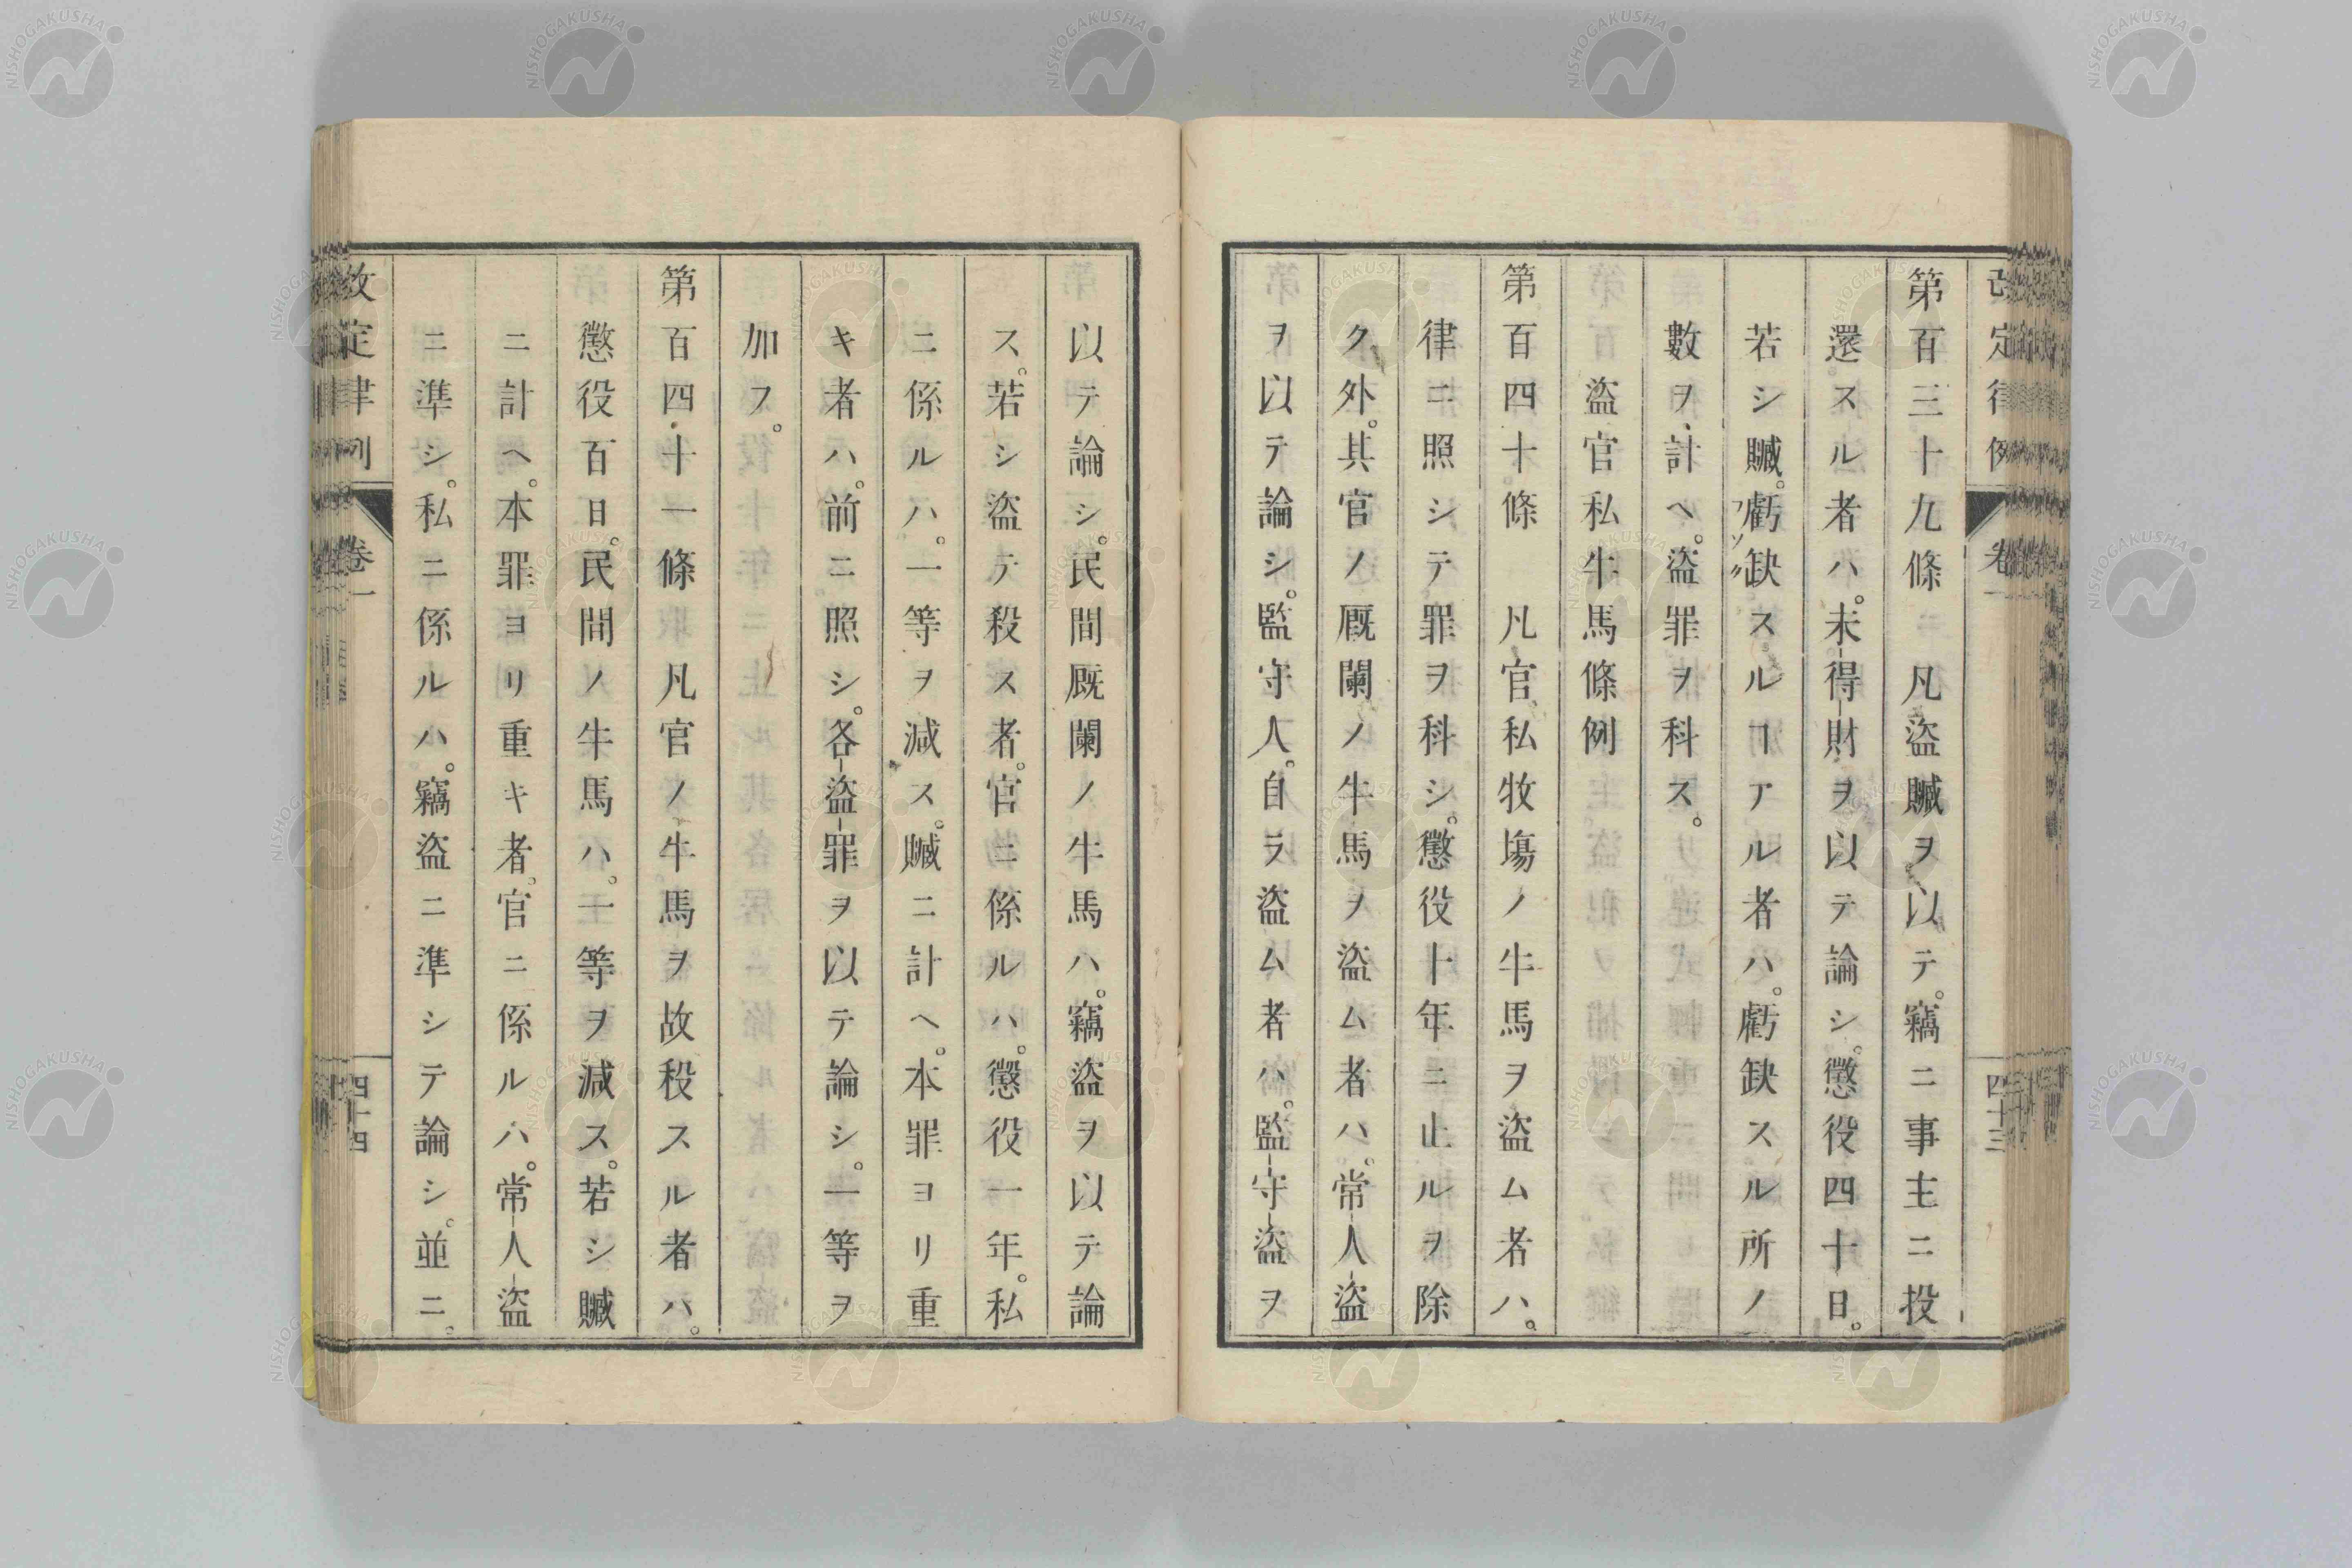 改定律例 卷一 四十三
第百三十九條 凡盜贓ヲ以テ。竊ニ事主ニ投
還スル者ハ。未得財ヲ以テ論シ。懲役四十日。
若シ贓。虧缺スルヿアル者ハ。虧缺スル所ノ
數ヲ計ヘ。盜罪ヲ科ス。
盜官私牛馬條例
第百四十條 凡官私牧塲ノ牛馬ヲ盜ム者ハ。
律ニ照シテ罪ヲ科シ。懲役十年ニ止ルヲ除
ク外。其官ノ厩闌ノ牛馬ヲ盜ム者ハ。常人盜
ヲ以テ論シ。監守人。自ラ盜ム者ハ。監守盜ヲ
以テ論シ。民間厩闌ノ牛馬ハ。竊盜ヲ以テ論
ス。若シ盜テ殺ス者。官ニ係ルハ。懲役一年。私
ニ係ルハ。一等ヲ减ス。贓ニ計ヘ。本罪ヨリ重
キ者ハ。前ニ照シ。各盜罪ヲ以テ論シ。一等ヲ
加フ。
第百四十一條 凡官ノ牛馬ヲ故殺スル者ハ。
懲役百日。民間ノ牛馬ハ。一等ヲ减ス。若シ贓
ニ計ヘ。本罪ヨリ重キ者。官ニ係ルハ。常人盜
ニ準シ。私ニ係ルハ。竊盜ニ準シテ論シ。並ニ。
改定律例 卷一 四十四
NISHOGAKUSHA